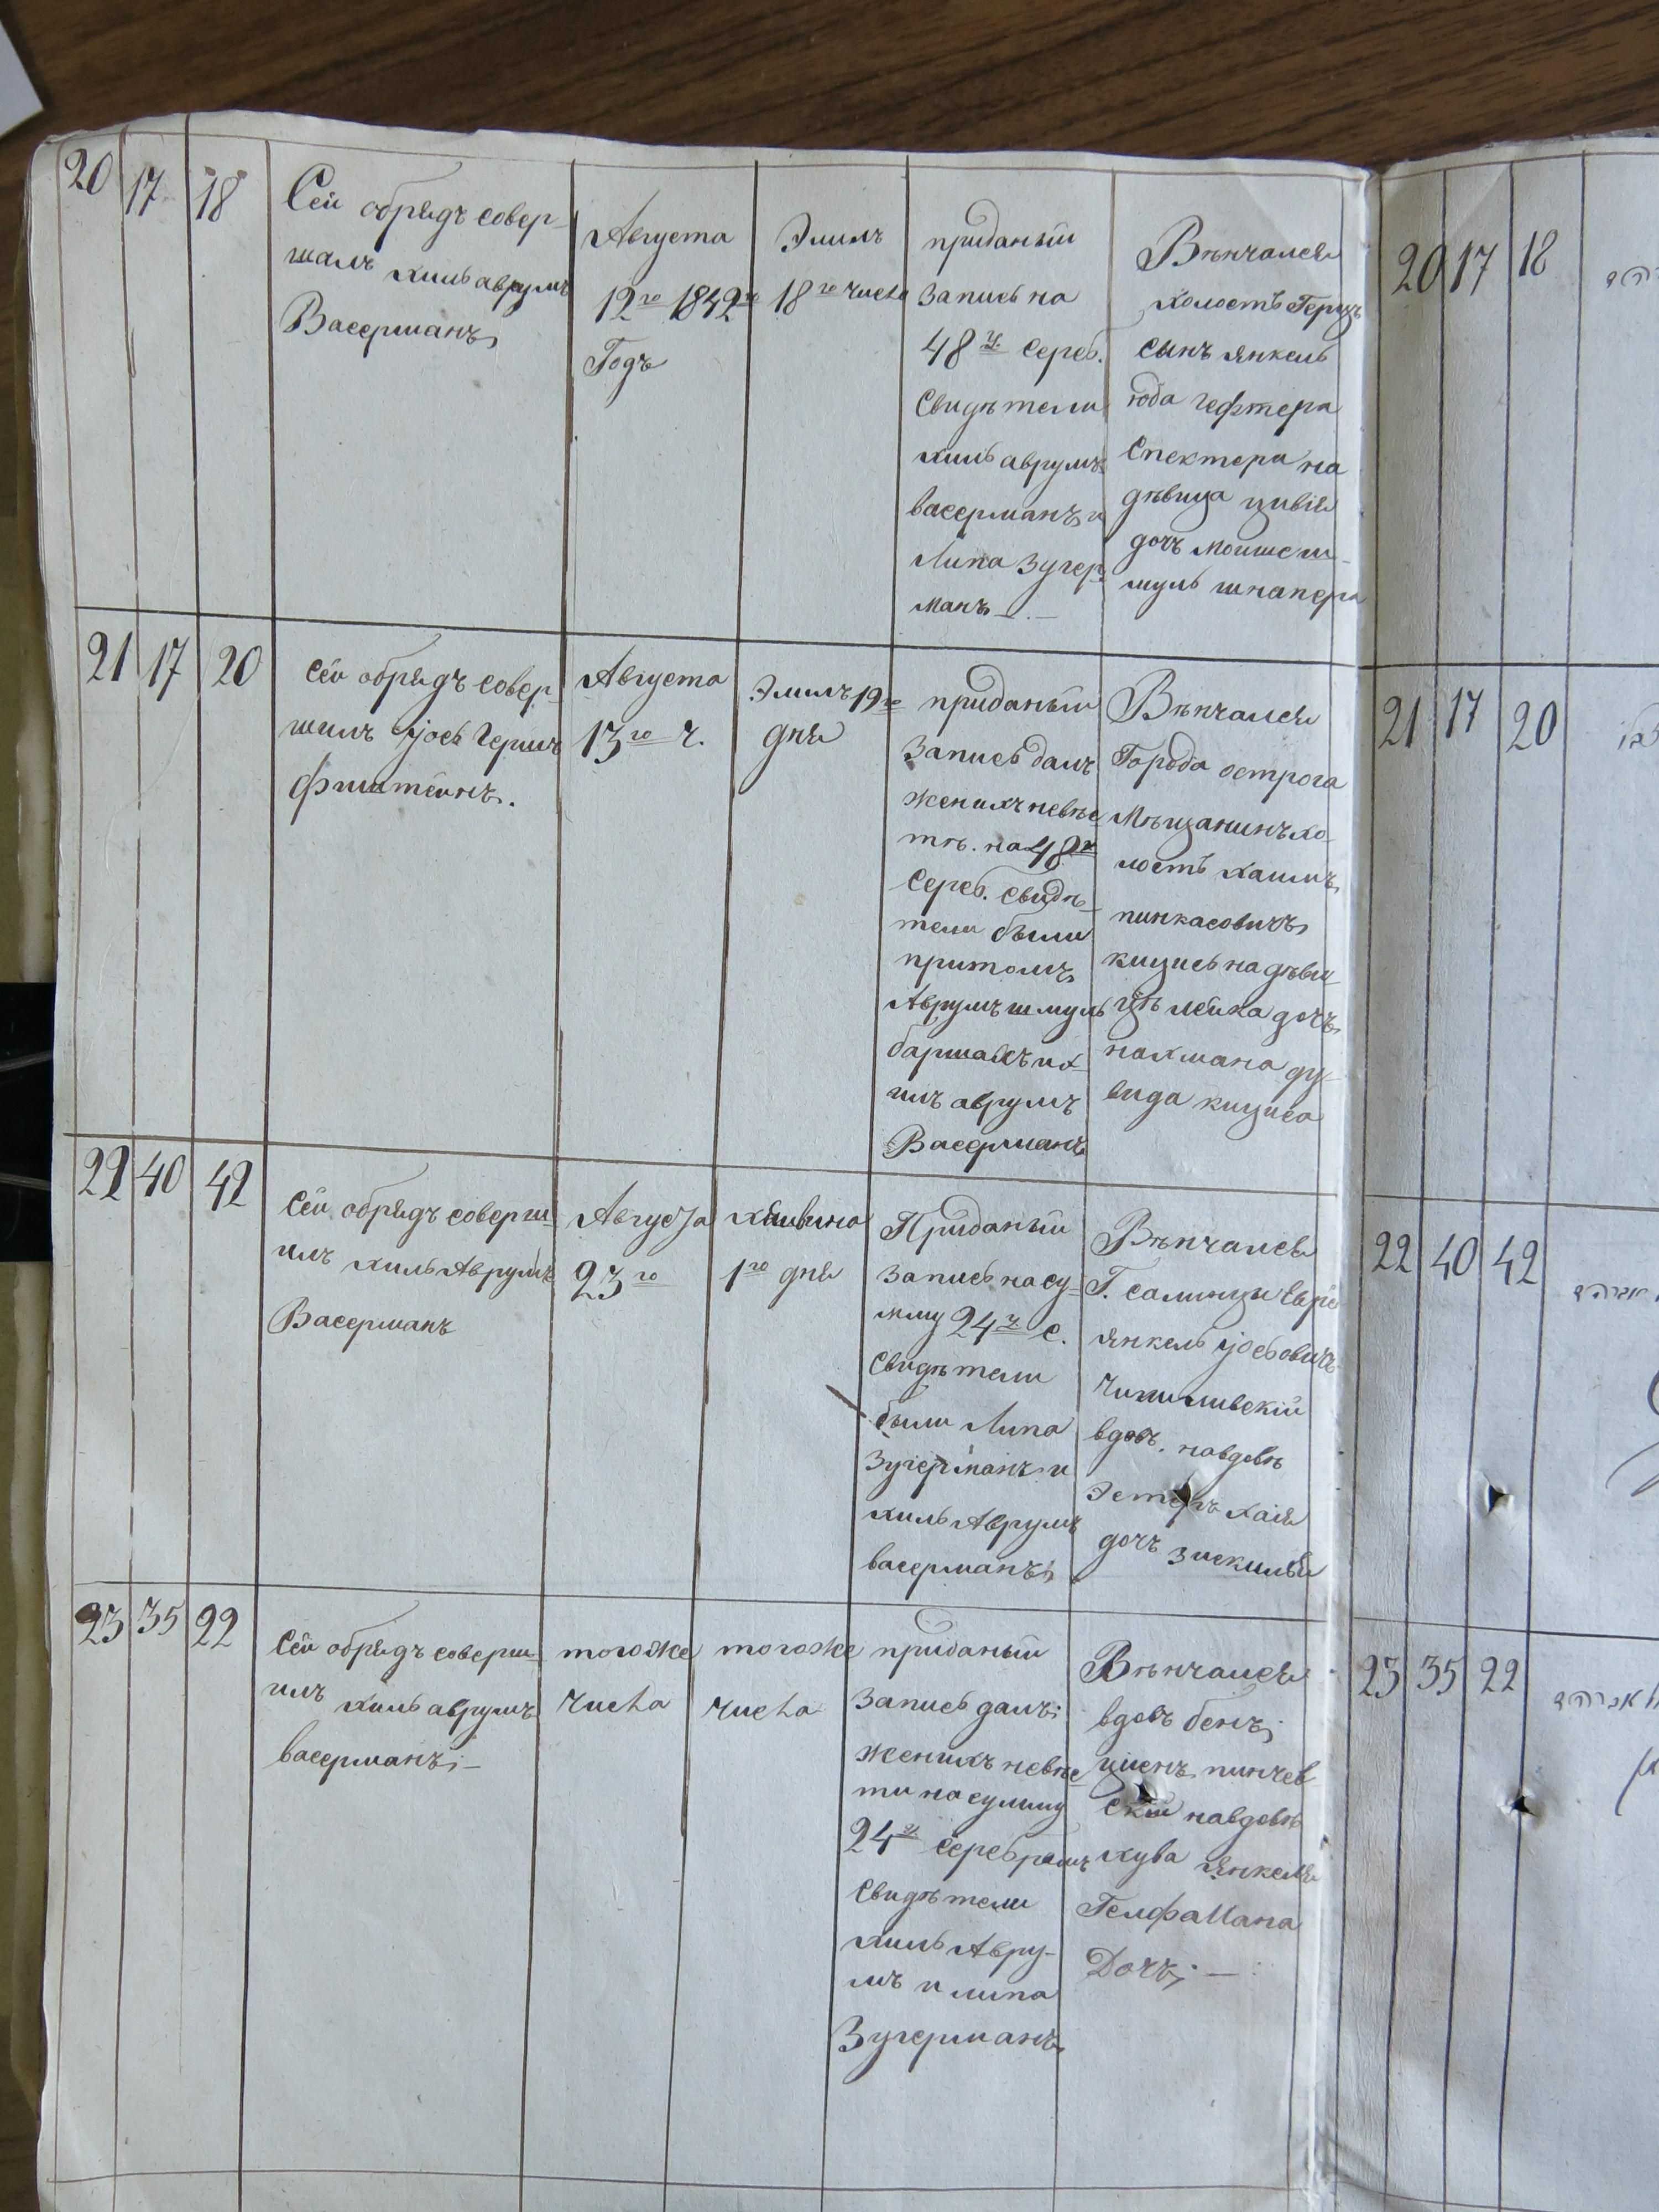 20 17 18
Сей обрядъ совер-
шалъ хиль аврумъ
Васерманъ
Августа
12го 1842го
Годъ
Элилъ
18го числа
приданый
запись на
48 ч. сереб.
Свидѣтели
хиль аврумъ
васерманъ и
Липа Зугер
манъ
Вѣнчался
холостъ Герцъ
сынъ янкель
юда гефтера
Спектера на
дѣвица цивія
дочъ моише ш-
муль шнапера
21 17 20
Сей обрядъ совер-
шилъ іось Герш
фиштейнъ.
Августа
13го ч.
Элилъ 19го
дня
приданый
Запись далъ
женихъ невѣс
тѣ. на 48 ч
Сереб. свидѣ-
тели были
притомъ
Аврумъ шмуль
баршакъ и х-
илъ аврумъ
Васерманъ
Вѣнчался
Города острога
Мѣщанинъ хо-
лостъ хаимъ
пинкасовичъ
кицисъ на дѣви-
цѣ лейка дочъ
нахмана ду-
вида кициса
22 40 42
Сей обрядъ соверш
илъ хиль Аврумъ
Васерманъ
Августа
23го
хешвина
1го дня
Приданый
Запись на су-
мму 24 ч. с.
Свидѣтели
были Липа
Зугерманъ и
хиль Аврумъ
васерманъ
Вѣнчался
Г. салинци Евре
янкель іосьовичъ
вдовъ. на вдовѣ
Эстеръ хаія
дочъ
23 35 22
Сей обрядъ соверш-
илъ хиль аврумъ
васерманъ;-
тогоже
числа
тогоже
числа
приданый
Запись далъ;
женихъ невѣс
ти на сумму
24 ч. серебромъ
Свидѣтели
хиль Авру-
мъ и липа
Зугерманъ
Вѣнчался
вдовъ бенъ;
ціенъ пинчев
скій на вдовѣ
хува янкеля
Гелфамана
Дочъ; —
20 17 18
21 17 20
22 40 42
23 35 22